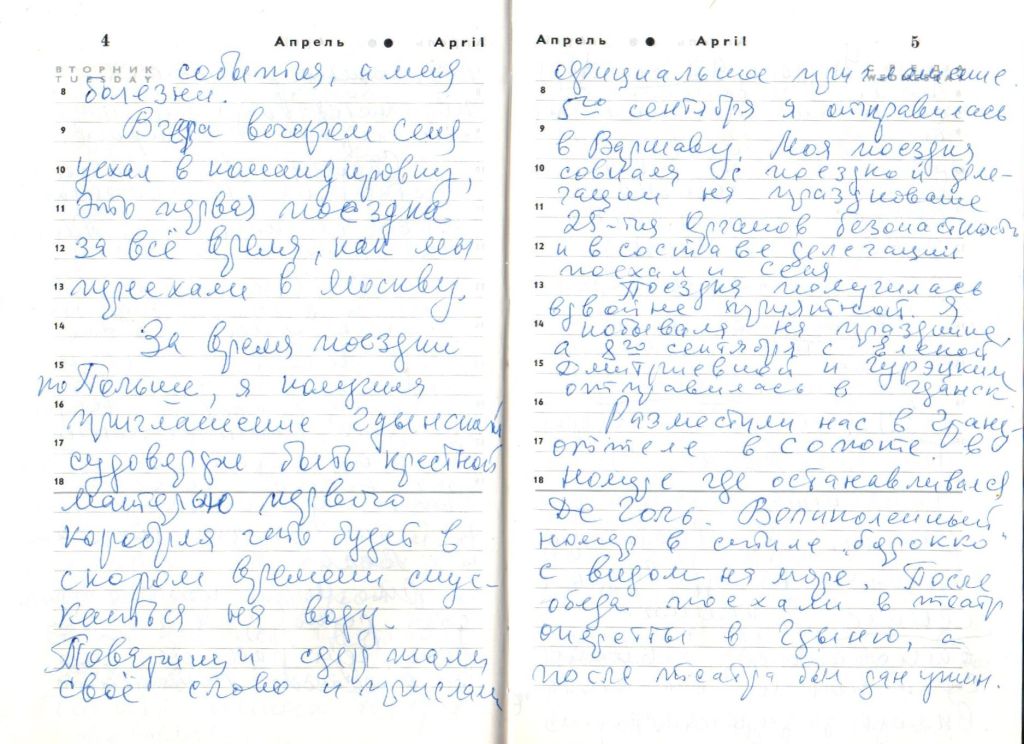 4 Апрель ● April
ВТОРНИК
TUESDAY
события, а меня
8 болезни.
9 Вчера вечером Сеня
10 уехал в командировку,
11 это первая поездка
12 за всё время, как мы
13 переехали в Москву.
14 За время поездки
15 по Польше, я получила
16 приглашение Гдынской
17 судоверфи быть крестной
18 матерью первого
корабля что будет в
скором времени спус-
каться на воду.
Товарищи сдержали
своё слово и прислали
Апрель ● April 5
официальное приглашение.
8 5го сентября я отправилась
9 в Варшаву. Моя поездка
10 совпала с поездкой деле-
гации на празднование
11 25-тия органов безопастности
12 и в составе делегации
поехал и Сеня
13 Поездка получилась
вдвойне приятной. Я
14 побывала на празднике,
а 8го сентября с Еленой
15 Дмитриевной и Гурэцким
отправилась в Гданск
16 Разместили нас в Гранд-
17 отэле в Сопоте. в
18 номере где останавливался
Де Голь. Великолепный
номер в стиле „барокко"
с видом на море. После
обеда поехали в театр
оперетты в Гдыню, а
после театра был дан ужин.